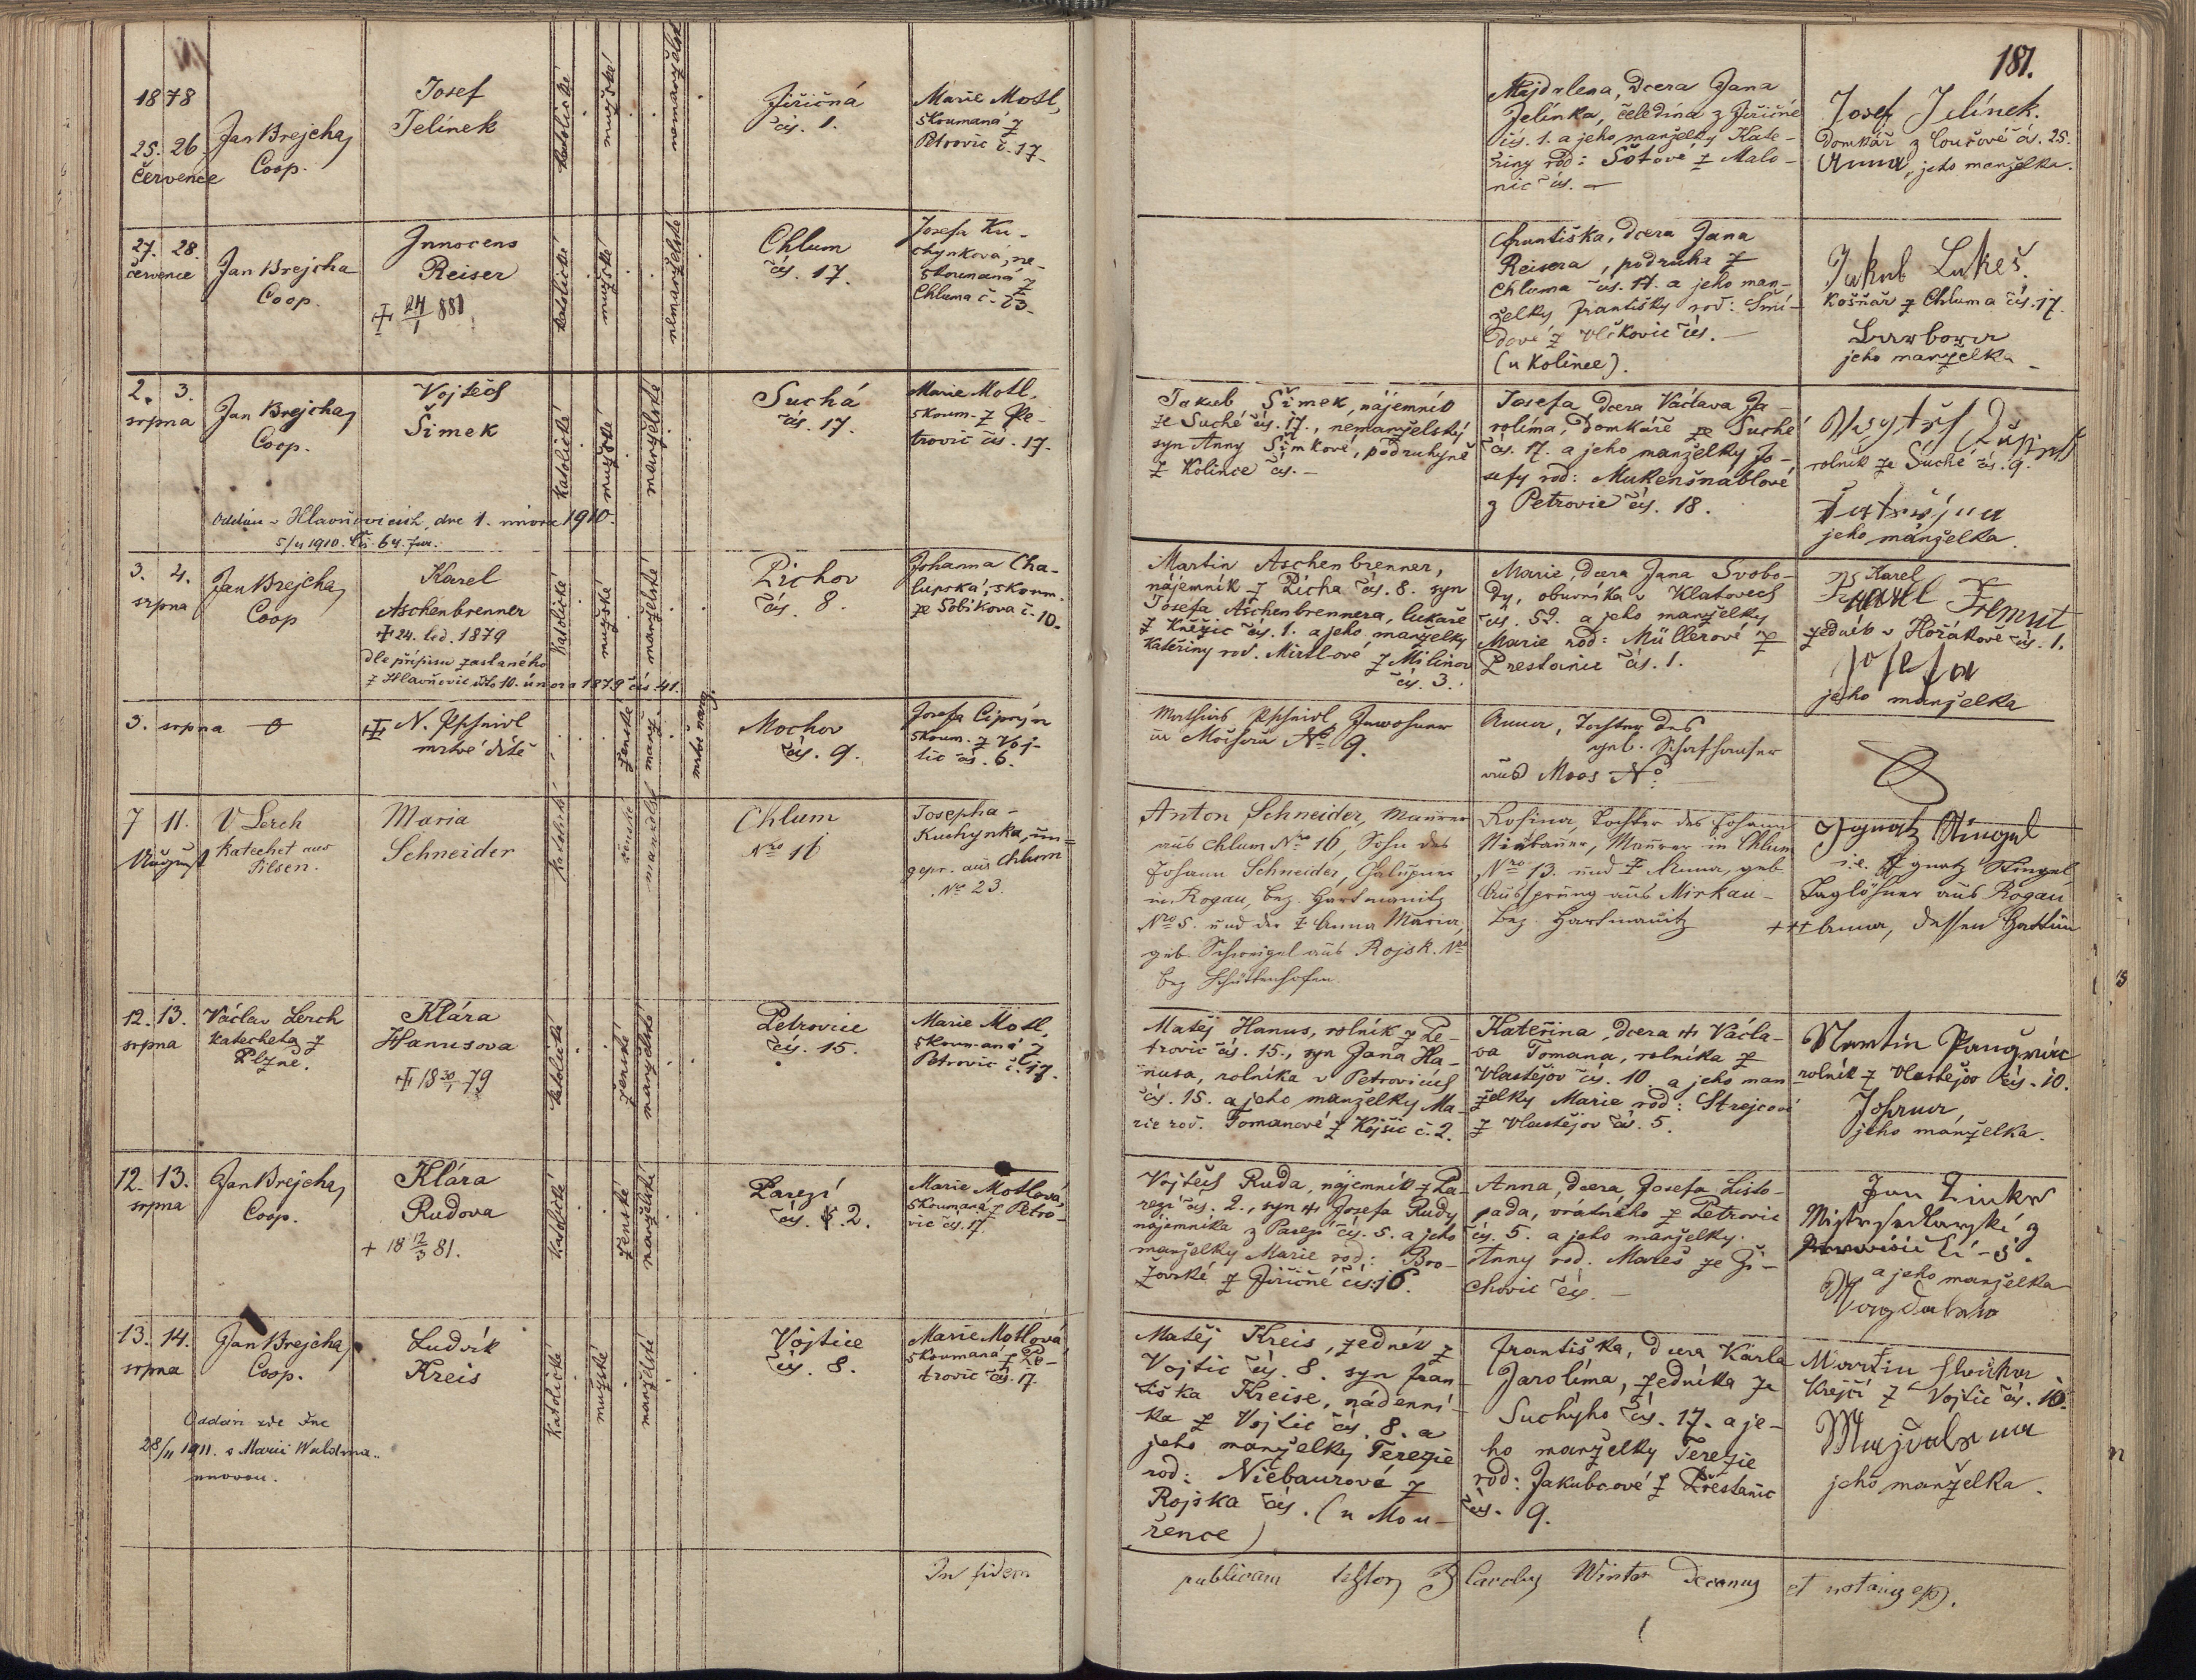 181.
1878
25. 26
července
Jan Brejcha,
Coop.
Josef
Jelínek
katolické
mužské
nemanželské
Jiřičná
čís. 1.
Marie Motl,
skoumaná z
Petrovic č. 17.
Majdalena, dcera Jana
Jelínka, čeledína z Jiřičné
čís. 1. a jeho manželky Kate-
řiny rod: Šotové z Malo-
nic čís. —
Josef Jelínek.
Domkář z Loučové čís. 25.
Anna, jeho manželka.
27. 28.
července
Jan Brejcha
Coop.
Innocens
Reiser
24/1 881
katolické
mužské
nemanželské
Chlum
čís. 17.
Josefa Ku-
chynková, ne-
skoumaná z
Chluma č. 23.
Františka, dcera Jana
Reisera, podruha z
Chluma čís. 17. a jeho man-
želky Františky rod: Šmi-
dové z Vlčkovic čís. —
(u Kolince).
Jakub Lukeš.
košňář z Chluma čís. 17.
Barbora
jeho manželka
2. 3.
srpna
Jan Brejcha,
Coop.
Vojtěch
Šimek
katolické
mužské
manželské
Suchá
čís. 17.
Marie Motl,
skoum. z Pe-
trovic čís. 17.
Oddán v Hlavňovicích, dne 1. února 1910.
5/11 1910. Čís. 64.
Jakub Šimek, nájemník
ze Suché čís. 17., nemanželský
syn Anny Šimkové, podruhyně
z Kolince čís. —
Josefa, dcera Václava Ja-
rolíma, domkáře ze Suché
čís. 17. a jeho manželky Jo-
sefy rod: Mukenšnablové
z Petrovic čís. 18.
rolník ze Suché čís. 9.
jeho manželka.
3. 4.
srpna
Jan Brejcha,
Coop
Karel
Aschenbrenner
24. led. 1879
dle přípisu zaslaného
z Hlavňovic dto 10. února 1879 čís 41.
katolické
mužské
manželské
Pichov
čís. 8.
Johanna Cha-
lupská, skoum.
ze Sobíkova č. 10.
Martin Aschenbrenner,
nájemník z Picha čís. 8. syn
Josefa Aschenbrennera, lukaře
z Kněžic čís. 1. a jeho manželky
Kateřiny rod. Mirtlové z Milínov
čís. 3.
Marie, dcera Jana Svobo-
dy, obuvníka v Klatovech
čís. 52. a jeho manželky
Marie rod: Müllerové z
Prestanic čís. 1.
Karel
Karel Fremut
zedník v Hořákově čís. 1.
Josefa
jeho manželka
3. srpna
N.
mrtvé dítě
ženské
manž.
mrtvě nar.
Mochov
čís. 9.
Josefa Ciprýn
skoum. z Voj-
tic čís. 6.
Mathias Inwohner
in Mochau No 9.
Anna, Tochter des
geb. Schafhauser
aus Moos No:
7 11.
August
V Lerch
Katechet aus
Pilsen.
Maria
Schneider
katolické
ženské
manželské
Chlum
Nro 16
Josepha
Kuchynka, un=
gepr. aus Chlum
No 23.
Anton Schneider, Maurer
aus Chlum Nro 16, Sohn des
Johann Schneider, Chalupner
in Rogau, bez. Hartmanitz
Nro 5. und der Anna Maria,
geb. Schweigel aus Rojsk. Nro
bez Schüttenhofen.
Rosina, Tochter des Johann
Niebauer, Maurer in Chlum
Nro 13. und Anna, geb.
Aussprung aus Mirkau
bez. Hartmanitz
Ignatz Stingel
i.e. Ignatz Stingel
Taglöhner aus Rogau
+++ Anna, dessen Gattin
12. 13.
srpna
Václav Lerch
katecheta z
Plzně.
Klára
Hanusova
18 30/1 79
katolické
ženské
manželské
Petrovice
čís. 15.
Marie Motl,
skoumaná z
Petrovic č. 17.
Matěj Hanus, rolník z Pe-
trovic čís. 15., syn Jana Ha-
nusa, rolníka v Petrovicích
čís. 15. a jeho manželky Ma-
rie rod. Tomanové z Kojšic č. 2.
Kateřina, dcera Václa-
va Tomana, rolníka z
Vlastějov čís. 10. a jeho man
želky Marie rod: Strejcové
z Vlastějov čís. 5.
Martin
rolník z Vlastějov čís. 10.
Johana,
jeho manželka.
12. 13.
srpna
Jan Brejcha,
Coop.
Klára
Rudova
+ 18 12/3 81.
katolické
ženské
manželské
Parezí
čís. 2.
Marie Motlová,
skoumaná z Petro-
vic čís. 17
Vojtěch Ruda, nájemník z Pa-
rezí čís. 2., syn Josefa Rudy
nájemníka z Parezí čís. 5. a jeho
manželky Marie rod: Bro-
žovské z Jiřičné čís. 16.
Anna, dcera Josefa Listo-
pada, vrátného z Petrovic
čís. 5. a jeho manželky
Anny rod. Mareš ze Ži-
chovic čís. —
Jan
a jeho manželka
13. 14.
srpna
Jan Brejcha,
Coop.
Ludvík
Kreis
katolické
mužské
manželské
Vojtice
čís. 8.
Marie Motlová
skoumaná z Pe-
trovic čís. 17.
Oddán zde dne
28/11 1911. s Marií Waldma-
nnovou.
Matěj Kreis, zedník z
Vojtic čís. 8. syn Fran-
tiška Kreise, nádenní-
ka z Vojtic čís. 8. a
jeho manželky Terezie
rod: Niebaurové z
Rojska čís. (u Mou-
řence)
Františka, dcera Karla
Jarolíma, zedníka ze
Suchýho čís. 17. a je-
ho manželky Terezie
rod: Jakubcové z Břestanic
čís. 9.
Martin
Krejčí z Vojtic čís. 10.
Majdalena
jeho manželka.
In fidem
publicam testor Carolus Winter Decanus et notarius